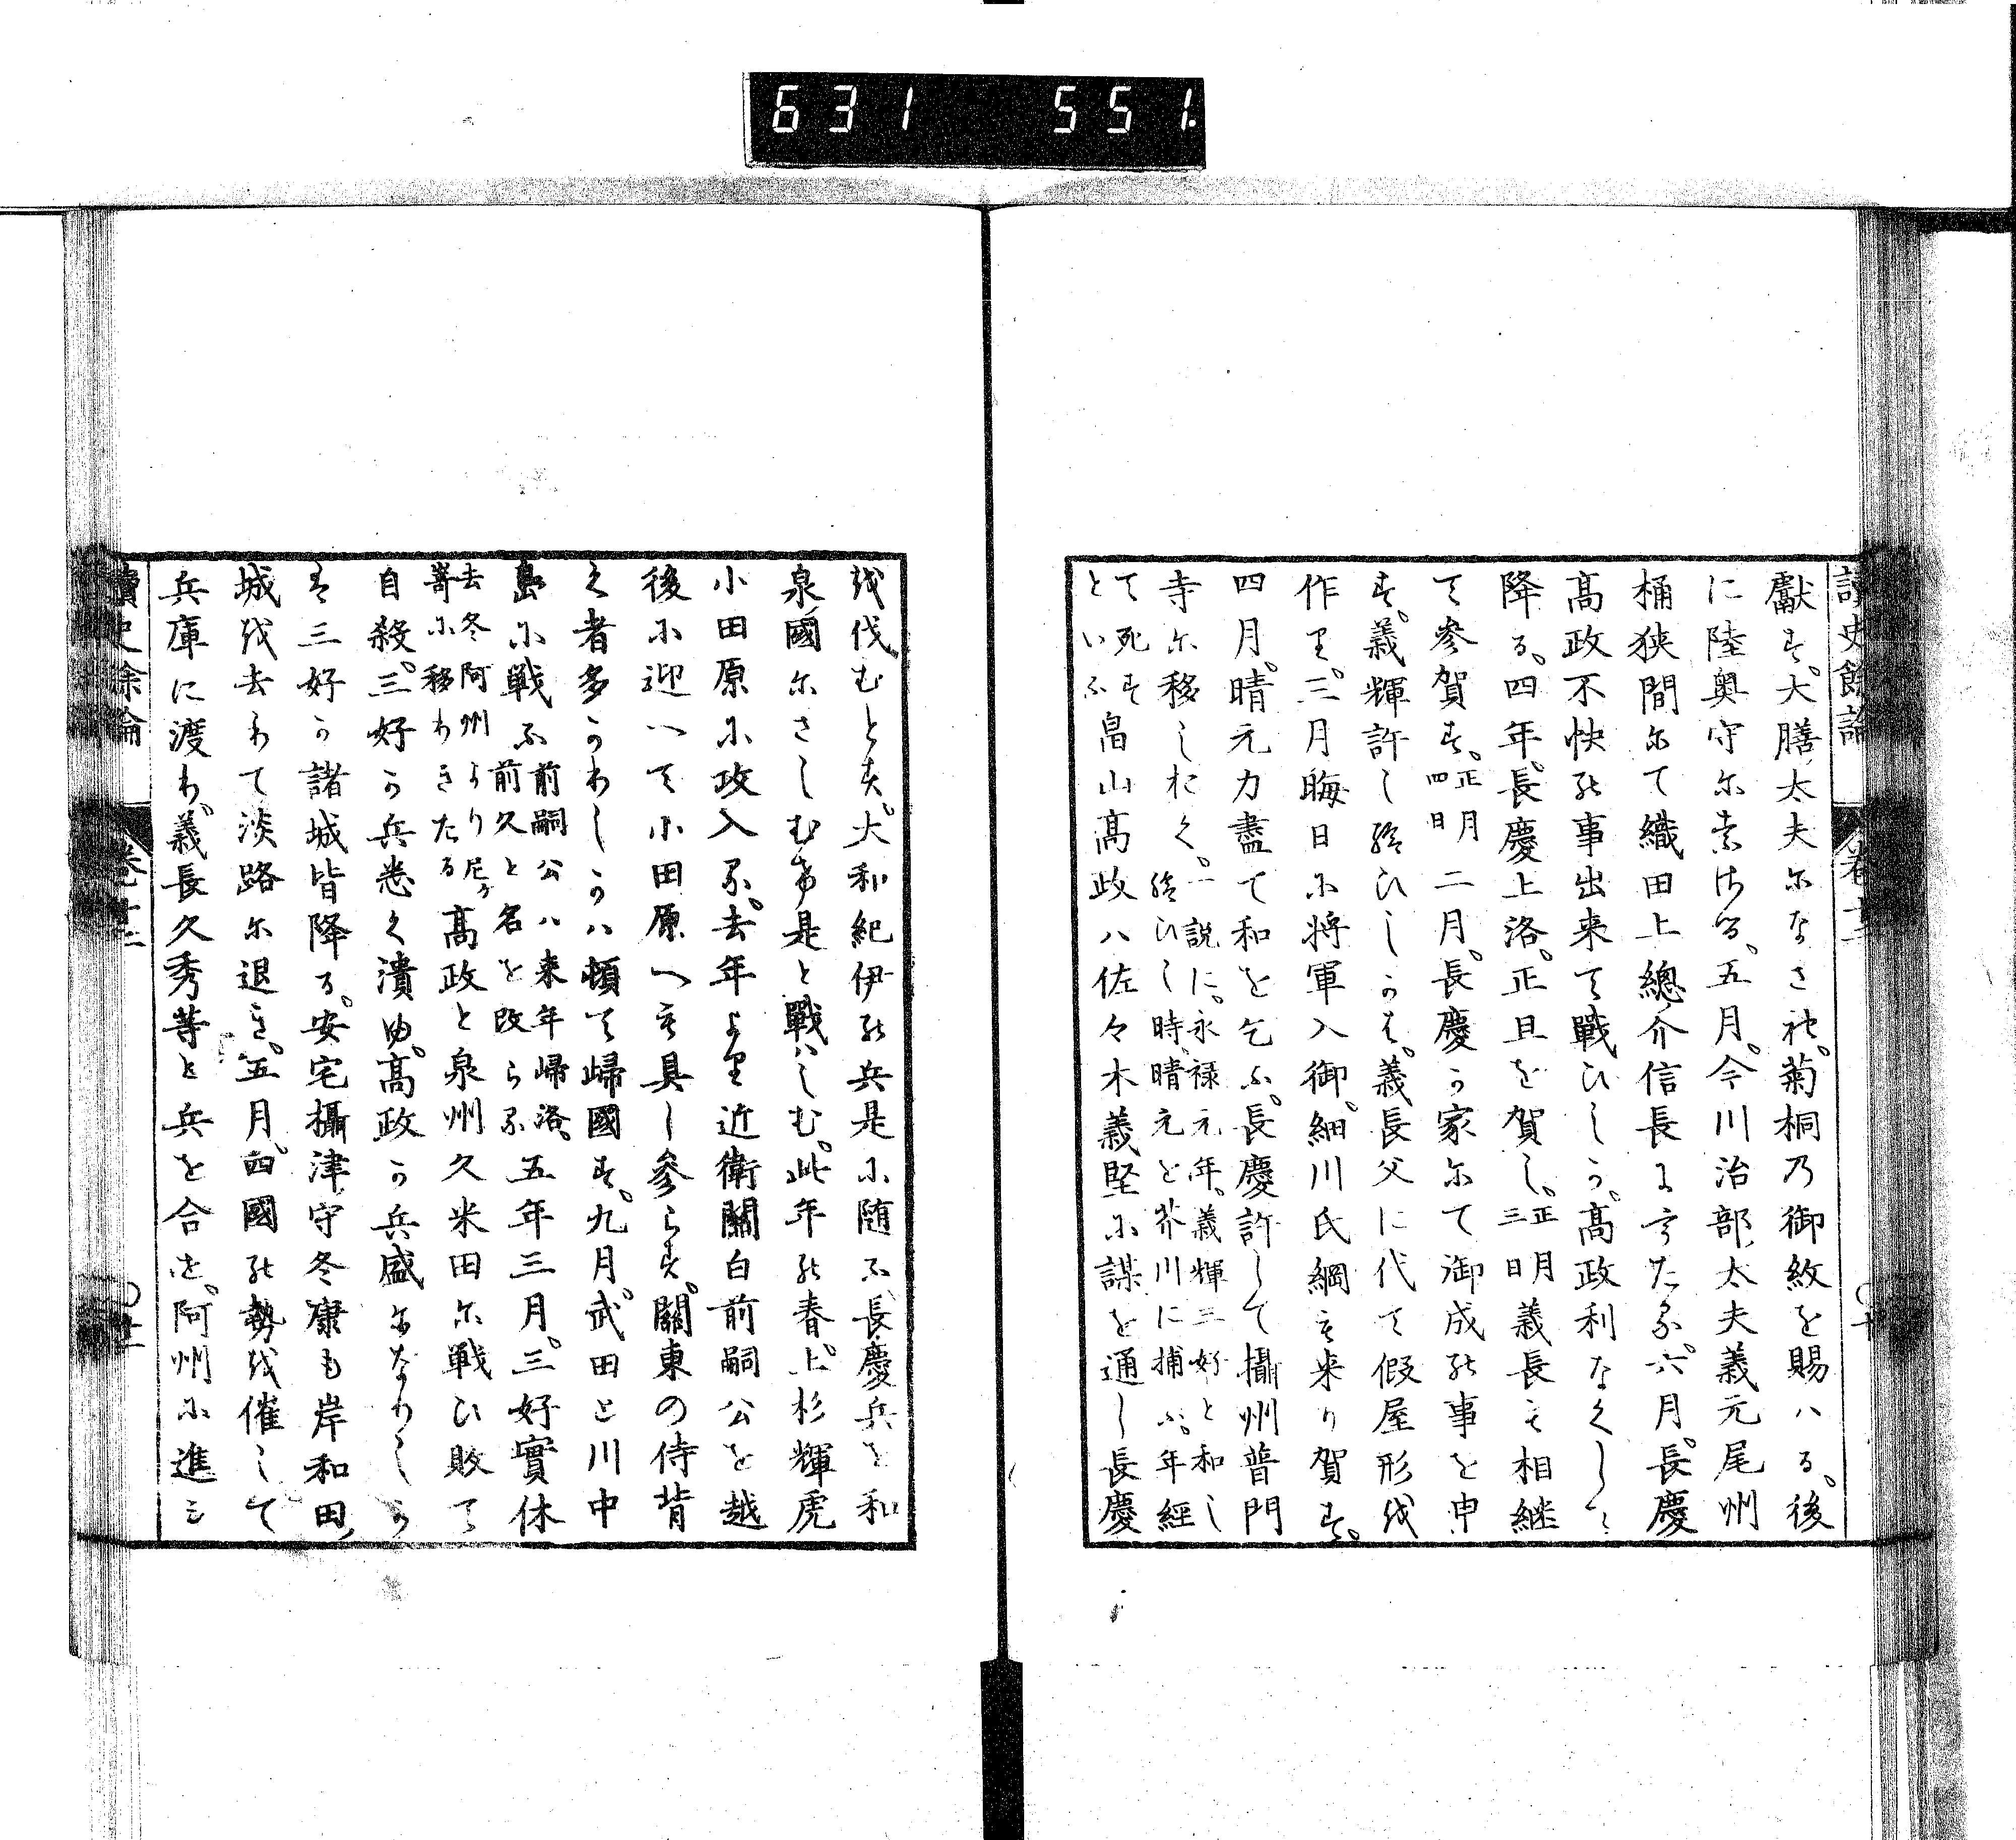 631 551
讀史餘論 卷十二
獻す。大膳太夫になさる。菊桐乃御紋を賜ハる。後
に陸奥守に素せらる。五月。今川治部太夫義元尾州
桶狭間にて織田上總介信長にうたる。六月。長慶
髙政不快の事出来て戦ひしか。髙政利なくして
降る。四年。長慶上洛。正旦を賀し。正月三日義長も相継
て参賀す。正月四日二月。長慶か家にて御成の事を申
す。義輝許し給ひしかは。義長父に代て假屋形を
作る。三月晦日に将軍入御。細川氏綱も来り賀す。
四月。晴元力盡て和を乞ふ。長慶許して攝州普門
寺に移しおく。一説に。永禄元年。義輝三好と和し
給ひし時。晴元を芥川に捕ふ。年経
て死す
といふ畠山髙政ハ佐々木義堅に謀を通し長慶
を伐むとす。大和紀伊の兵是に随ふ長慶兵を和
泉國にさしむけ是と戰ハしむ。此年の春。上杉輝虎
小田原に攻入る。去年より近衛關白前嗣公を越
後に迎へて小田原へも具し参らす。關東の侍背
く者多かりしかハ頓て歸國す。九月。武田と川中
島に戦ふ前嗣公ハ来年歸洛。
前久と名を改らる五年三月。三好實休
去冬阿州より尼か
嵜に移りきたる髙政と泉州久米田に戦ひ敗て
自殺。三好か兵悉く潰ゆ。髙政か兵盛になりしか
は三好か諸城皆降る。安宅攝津守冬康も岸和田
城を去りて淡路に退き。五月。四國の勢を催して
兵庫に渡り。義長久秀等と兵を合せ。阿州に進ミ
讀史餘論 卷十二 十一